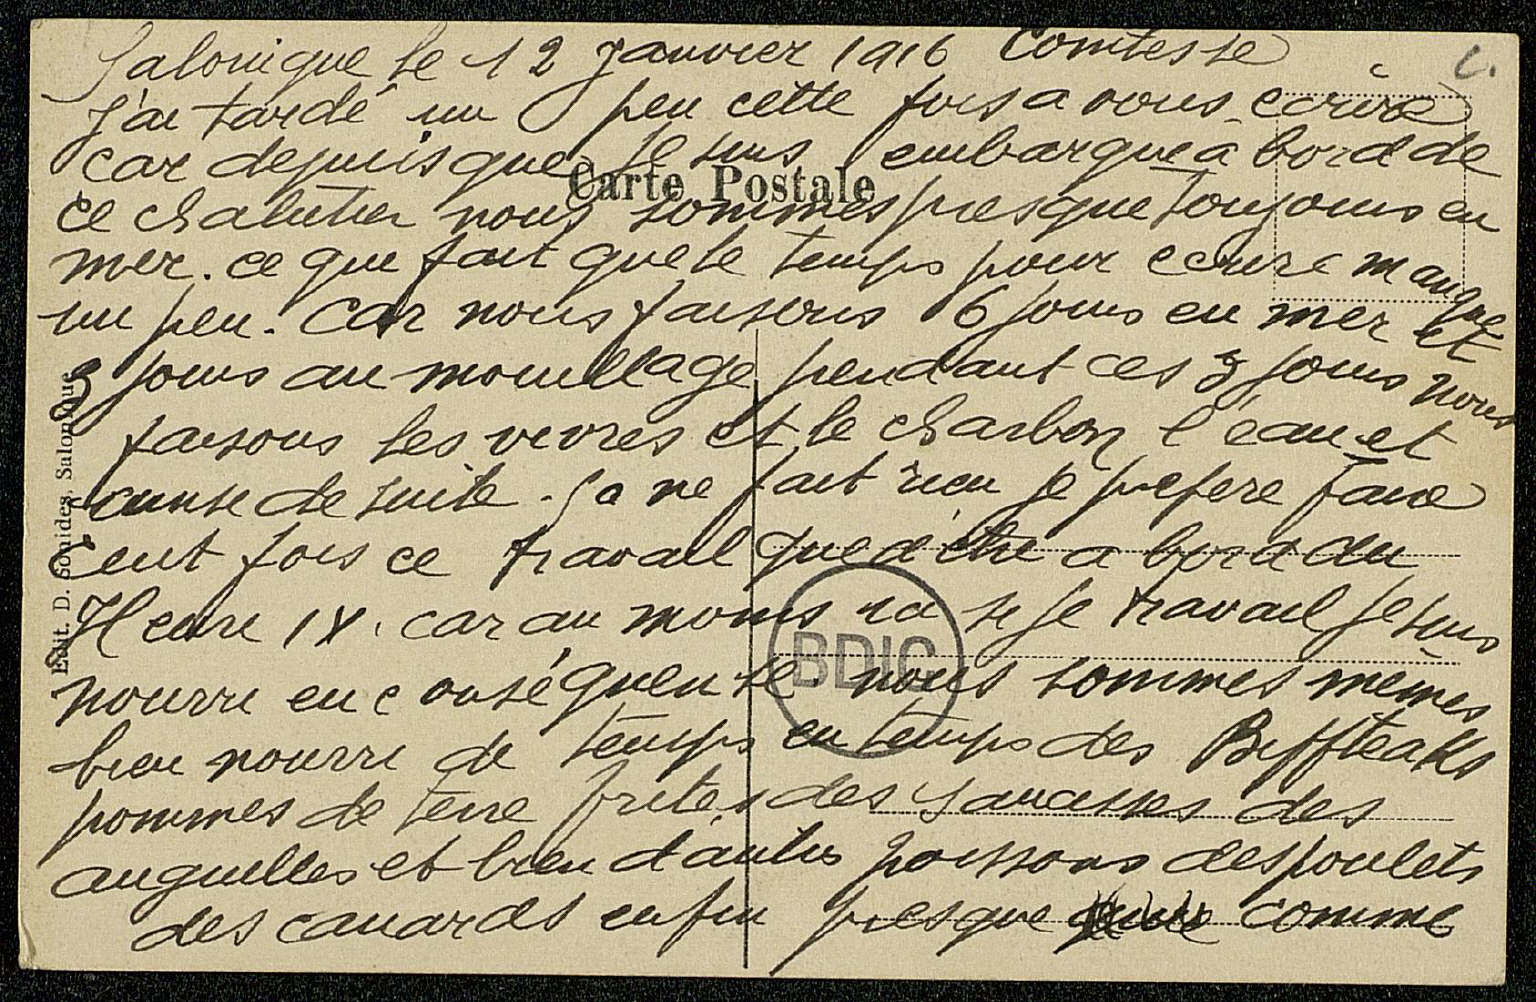 Salonique le 12 Janvier 1916 Comtesse
c.
J'ai tardé un peu cette fois a vous ecrire
car depuis que je suis embarque a bord de
Carte Postale
ce chalutier nous sommes presque toujours en
mer. ce que fait que le temps pour ecrire manque
un peu. Car nous faisons 6 jours en mer et
3 jours au mouillage pendant ces 3 jours nous
faisons les vivres et le charbon l'eau et
ainse de suite. Ça ne fait rien je prefere faire
cent fois ce travail que d'être a bord du
Henri IV. car au moins ici si je travail je suis
nourri en conséquense. nous sommes mêmes
bien nourri de temps en temps des Biffteaks
pommes de terre frites des saucisses des
anguelles et bien d'autres poissons des poulets
des canards enfin presque comme
Edit. D. Souides. Salonique
BDIC